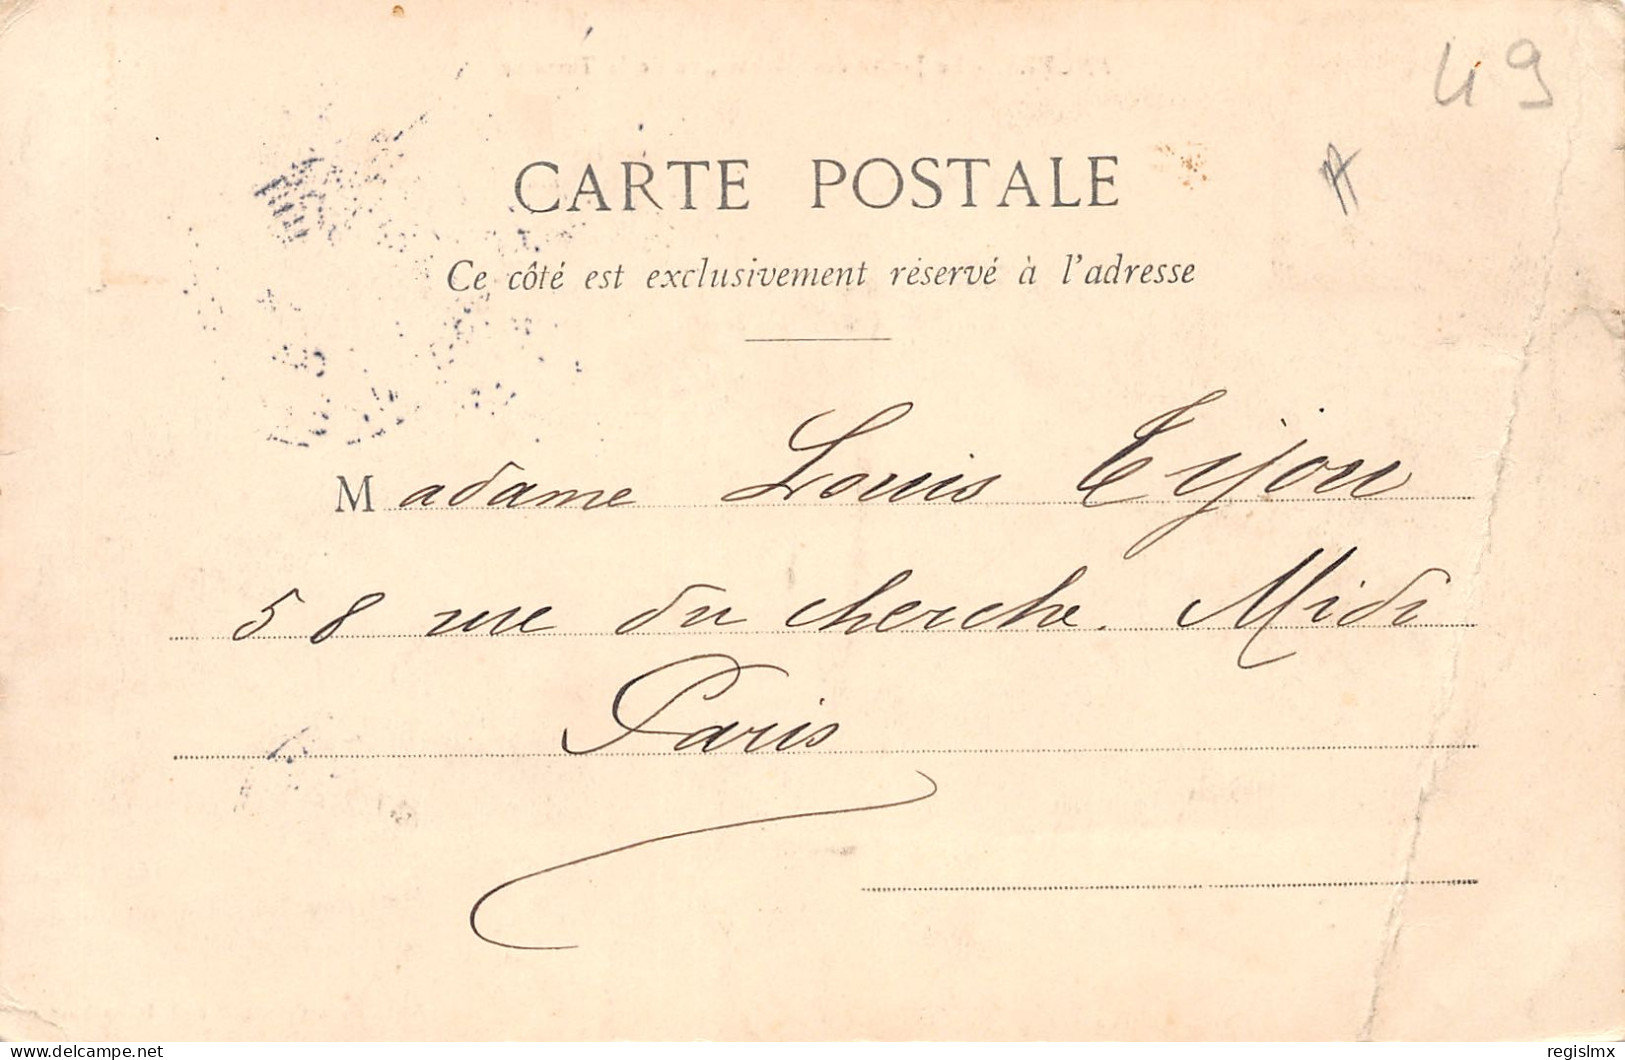 49
A
CARTE POSTALE
Ce côté est exclusivement réservé à l'adresse
Madame Louis Tijou
58 rue du cherche. Midi
Paris
www.delcampe.net
regislmx